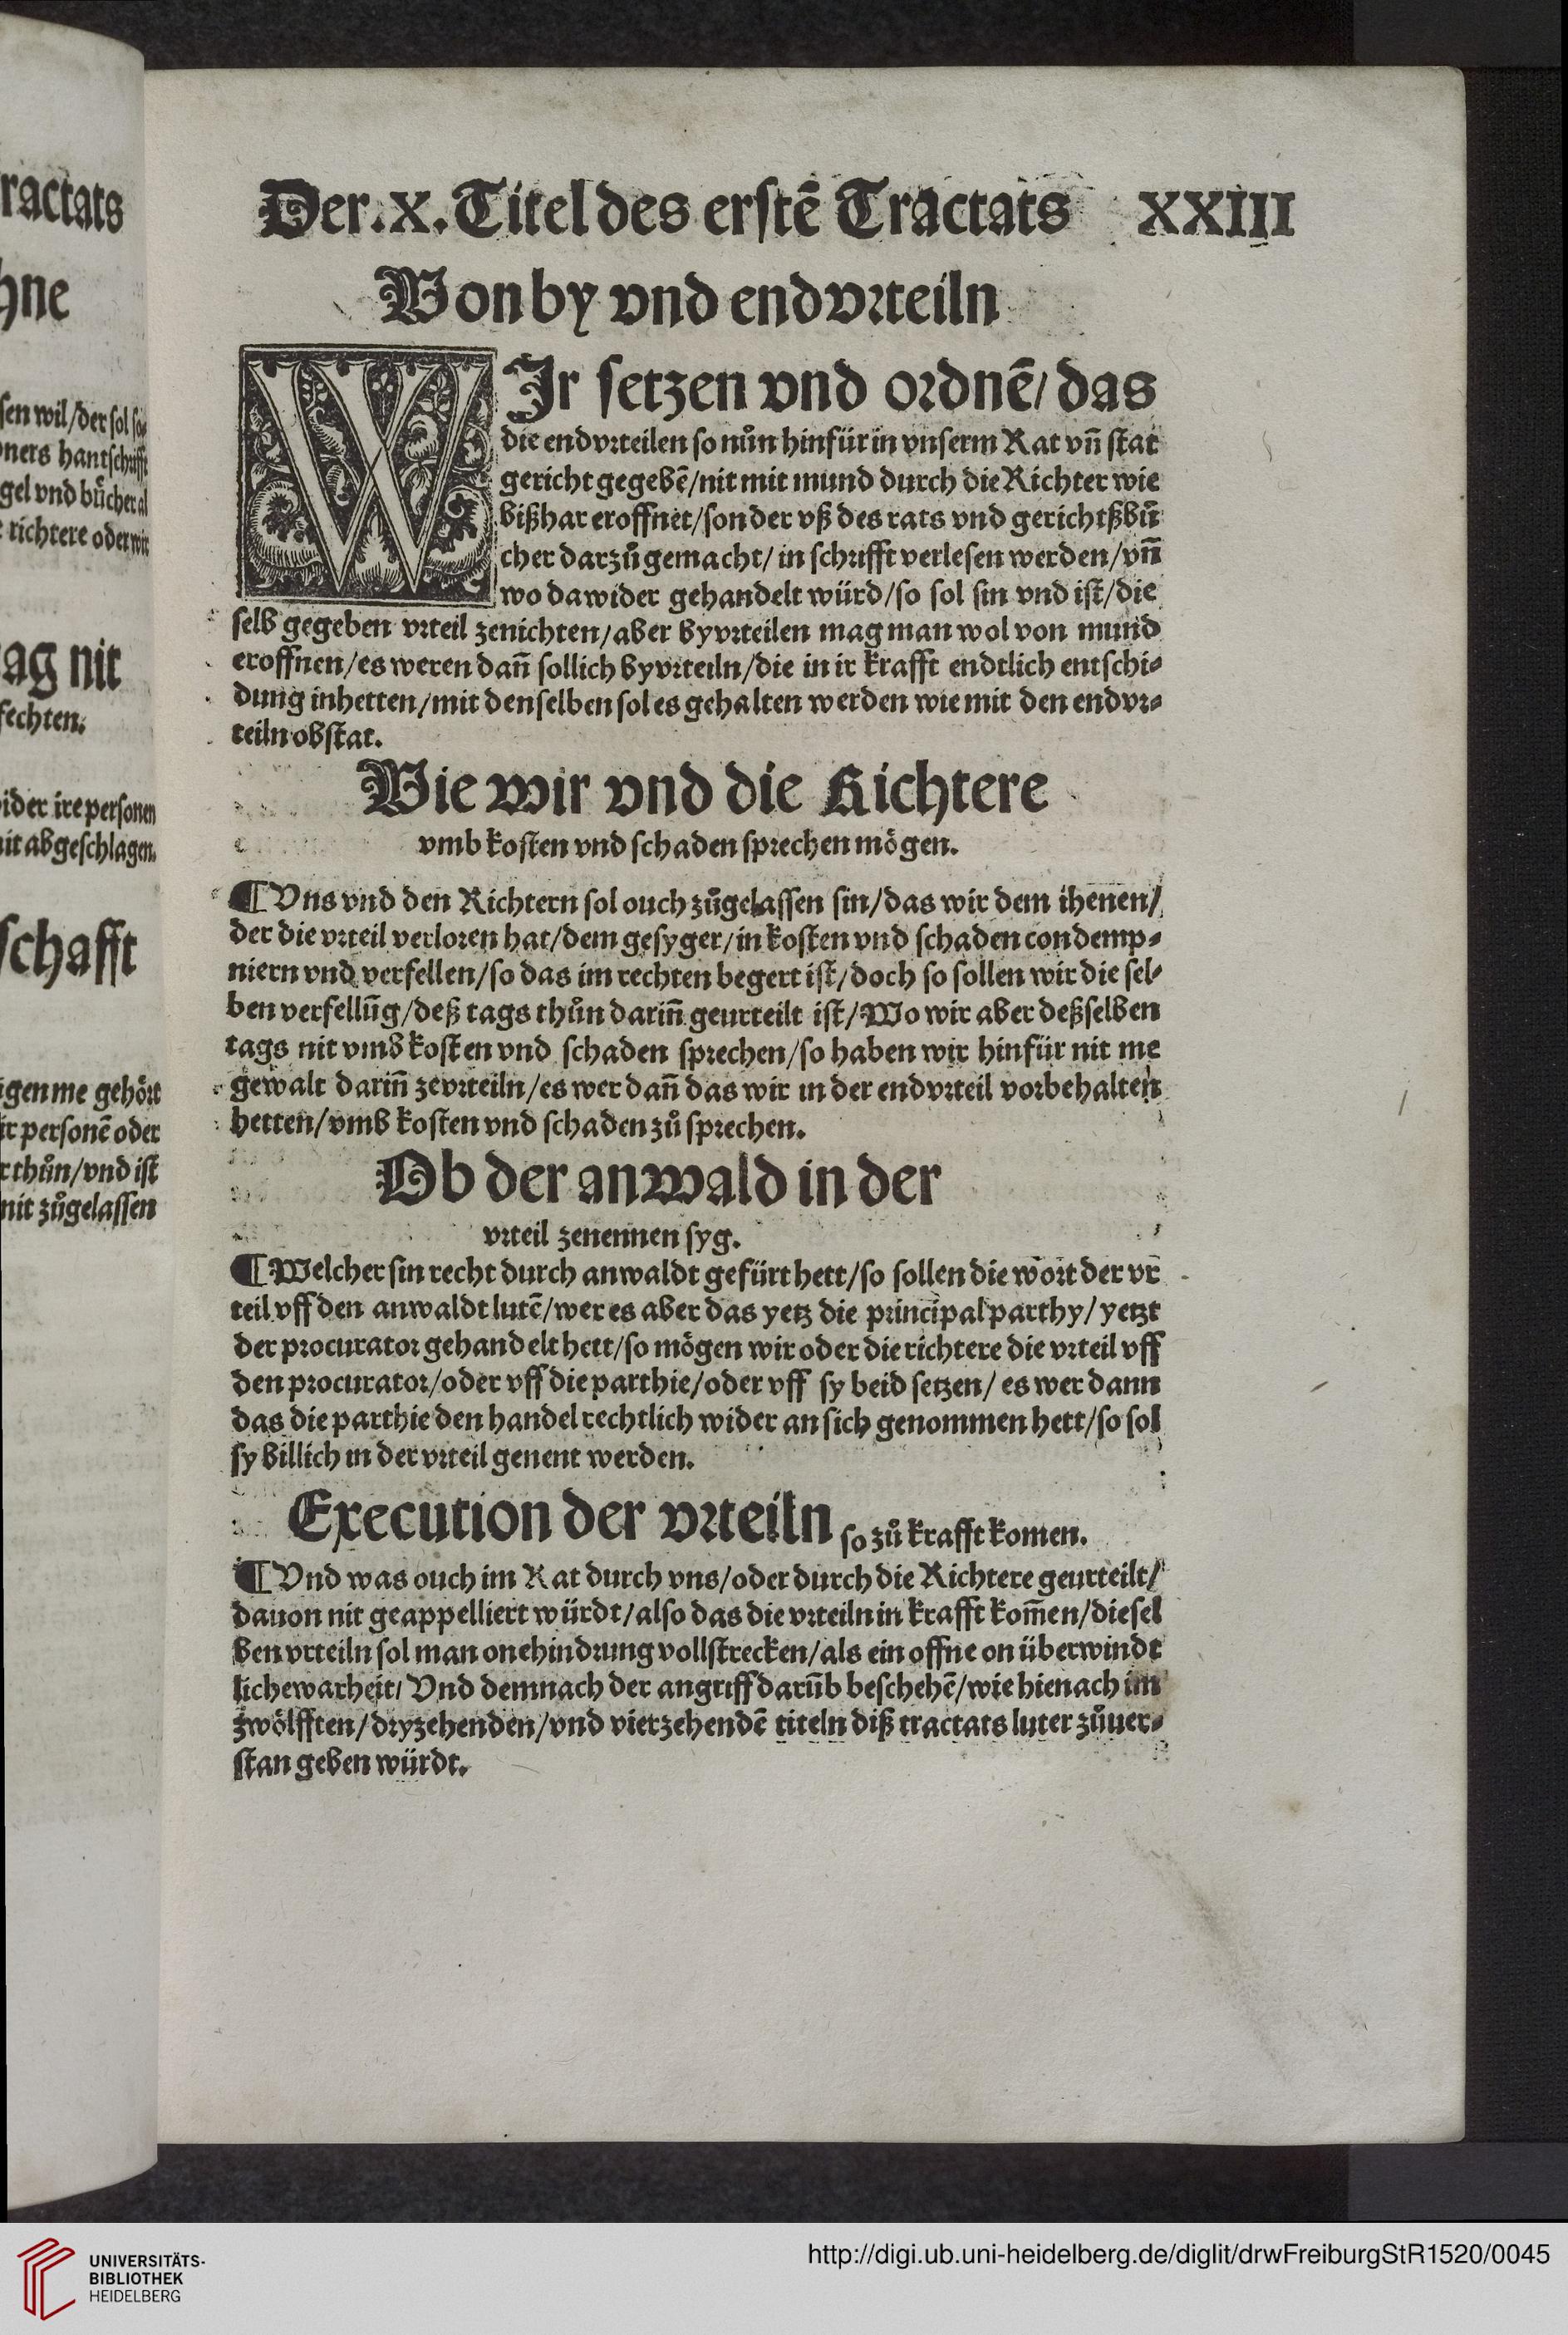 ractats
hne
sen wil/der sol so⸗
ners hantschrifft
gel vnd bücher al
richtere oder wir
ag nit
fechten.
ider ire personen
nit abgeschlagen.
schafft
igen me gehört
ir personē oder
r thůn/vnd ist
nit zůgelassen
Der.X.Titel des erstē Tractats XXIII
Von by vnd endvrteiln
WIr setzen vnd ordnē/das
die endvrteilen so nůn hinfür in vnserm Rat vn̄ stat
gericht gegebē/nit mit mund durch die Richter wie
bißhar eroffnet/sonder vß des rats vnd gerichtßbů
cher darzů gemacht/in schrifft verlesen werden/vn̄
wo dawider gehandelt würd/so sol sin vnd ist/die
selb gegeben vrteil zenichten/aber byvrteilen mag man wol von mund
eroffnen/es weren dan̄ sollich byvrteiln/die in ir krafft endtlich entschi⸗
dung inhetten/mit denselben sol es gehalten werden wie mit den endvr⸗
teiln obstat.
Wie wir vnd die Richtere
vmb kosten vnd schaden sprechen mögen.
¶ Vns vnd den Richtern sol ouch zůgelassen sin/das wir dem ihenen/
der die vrteil verloren hat/dem gesyger/in kosten vnd schaden condemp⸗
niern vnd verfellen/so das im rechten begert ist/doch so sollen wir die sel⸗
ben verfellūg/deß tags thůn darin̄ geurteilt ist/Wo wir aber deßselben
tags nit vmb kosten vnd schaden sprechen/so haben wir hinfür nit me
gewalt darin̄ zevrteiln/es wer dan̄ das wir in der endvrteil vorbehalten
hetten/vmb kosten vnd schaden zů sprechen.
Ob der anwald in der
vrteil zenennen syg.
¶ Welcher sin recht durch anwaldt gefürt hett/so sollen die wort der vr
teil vff den anwaldt lutē/wer es aber das yetz die principal parthy/yetzt
der procurator gehandelt hett/so mögen wir oder die richtere die vrteil vff
den procurator/oder vff die parthie/oder vff sy beid setzen/es wer dann
das die parthie den handel rechtlich wider an sich genommen hett/so sol
sy billich in der vrteil genent werden.
Execution der vrteiln so zů krafft komen.
¶ Vnd was ouch im Rat durch vns/oder durch die Richtere geurteilt/
dauon nit geappelliert würdt/also das die vrteiln in krafft kom̄en/die sel
ben vrteiln sol man one hindrung vollstrecken/als ein offne on überwindt
liche warheit/Vnd demnach der angriff darūb beschehē/wie hienach im
zwölfften/dryzehenden/vnd vierzehendē titeln diß tractats luter zůuer⸗
stan geben würdt.
UNIVERSITÄTS-
BIBLIOTHEK
HEIDELBERG
http://digi.ub.uni-heidelberg.de/diglit/drwFreiburgStR1520/0045